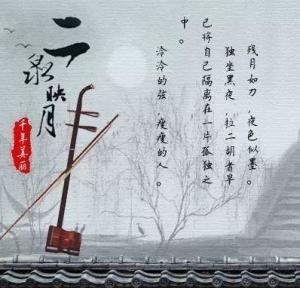 二泉映月
千年美丽
残月如刀，夜色似墨。
独坐黑夜，拉二胡者早
已将自己隔离在一片孤独之
中。
泠泠的弦，瘦瘦的人。